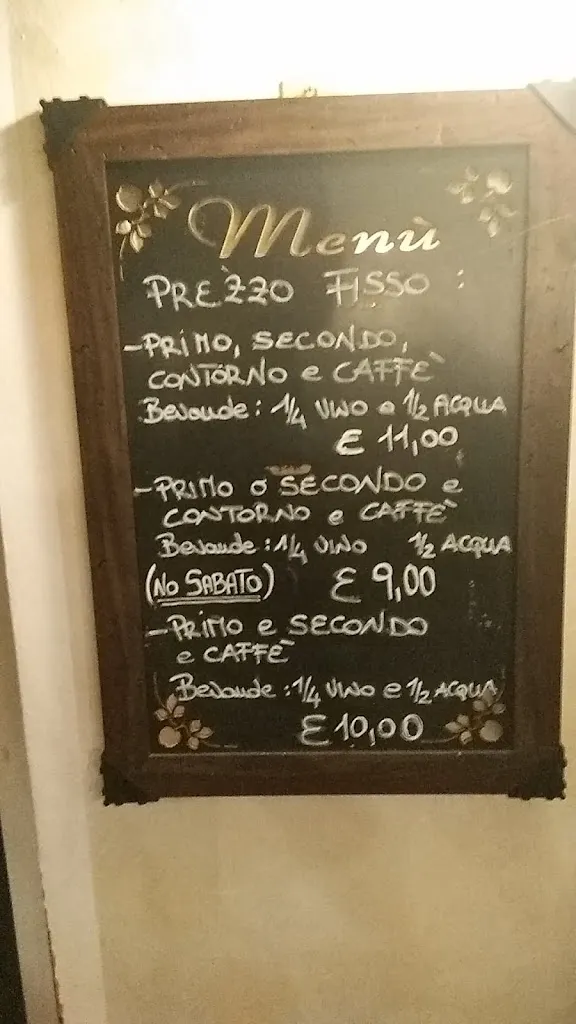 Menù
PREZZO FISSO :
- PRIMO, SECONDO,
CONTORNO e CAFFE'
Bevande: 1/4 VINO e 1/2 ACQUA
€ 11,00
- PRIMO o SECONDO e
CONTORNO e CAFFE'
Bevande: 1/4 VINO 1/2 ACQUA
(NO SABATO) € 9,00
- PRIMO E SECONDO
e CAFFE'
Bevande: 1/4 VINO e 1/2 ACQUA
€ 10,00